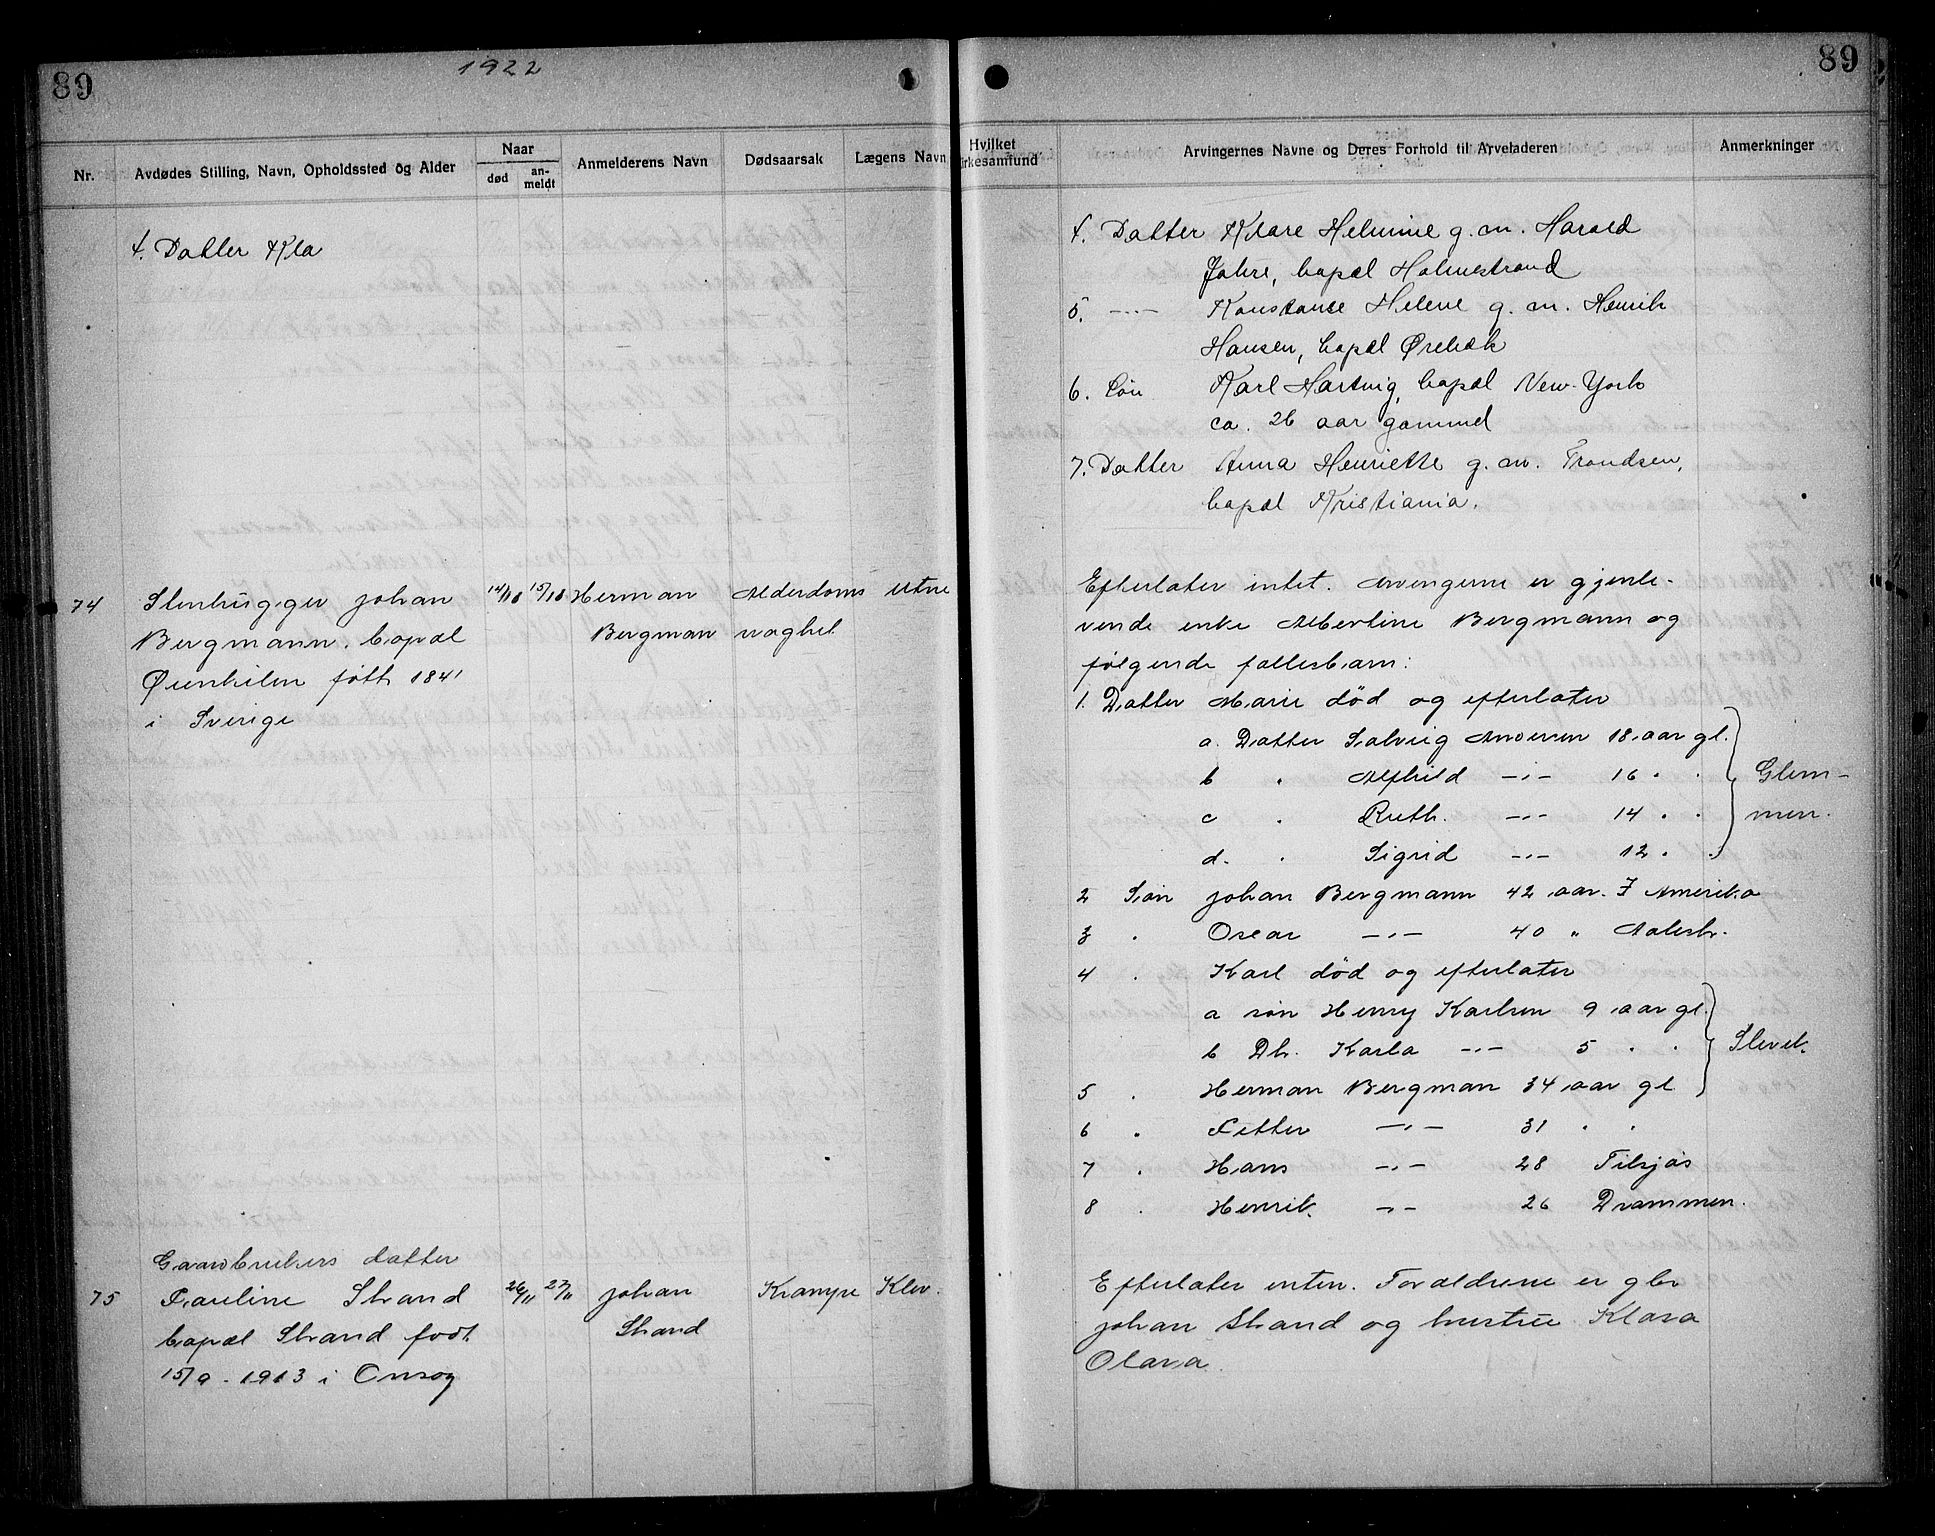 89
1922
Nr.
Avdødes Stilling, Navn, Opholdssted og Alder
Naar
død
an-
meldt
Anmelderens Navn
Dødsaarsak
Lægens Navn
4. Datter Kla
74
Stenhugger Johan
Bergmann. bopæl
Øienkilen født 1841
i Sverige
14/11
15/11
Herman
Bergman
Alderdoms
svaghet
Utne
75
Gaardbrukers datter
Pauline Strand
bopæl Strand født
15/9 - 1913 i Onsøy
26/11
27/11
Johan
Strand
Krampe
Klev.
89
Hvilket
irkesamfund
Arvingernes Navne og Deres Forhold til Arveladeren
Anmerkninger
4. Datter Klare Helmine g. m. Harald
Jahre, bopæl Holmestrand
5. -"- Konstanse Helene g. m. Henrik
Hansen, bopæl Ørebæk
6. Søn Karl Hartvig, bopæl New-York
ca. 26 aar gammel
7. Datter Anna Henriette g. m. Trondsen,
bopæl Kristiania.
Efterlater intet. Arvingerne er gjenle-
vende enke Albertine Bergmann og
følgende fellesbarn:
1. Datter Marie død og efterlater
a. Datter Solveig Andersen 18 aar gl.
b " Alfhild -"- 16 " "
Glem-
c " Ruth. -"- 14 " "
men.
d. " Sigrid -"- 12 " "
2 Søn Johan Bergmann 42 aar. I Amerika
3 " Oscar -"- 40 "
4 " Karl død og efterlater
a søn Henry Karlsen 9 aar gl.
b Dtr. Karla -"- 5 " "
Slevik.
5 " Herman Bergman 34 aar gl
6 " Petter -"- 31 " "
7 " Hans -"- 28
8 " Henrik. -"- 26 Drammen.
Efterlater inten. Foreldrene er gbr
Johan Strand og hustru Klara
Olava.